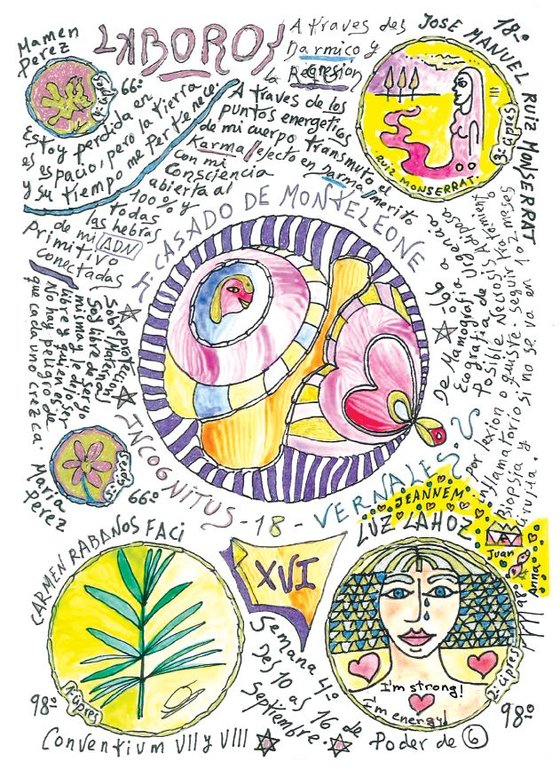 Mamen
Perez
66º
LABOROS
A traves del
Darmico y
la Regresion
JOSE MANUEL RUIZ MONSERRAT
18º
3ª cipres
2012 MONSERRAT
Estoy perdida en
el espacio, pero la tierra
y su tiempo me Pertenece
A traves de los
puntos energeticos
de mi cuerpo transmuto el
Karma/efecto en Darma/merito
con mi
Consciencia
abierta al
100% y
todas
las hebras
de mi ADN
Primitivo
conectadas
CASADO DE MONTELEONE
INCOGNITUS-18-VERNALES
Sobreprotección
Maternal
Soy libre de ser yo
misma y le dejo
libre a quien los
No hay peligro de
que cada uno crezca.
María
Perez
66º
De Mamografia Urgencia
Ecografia
Posible Necrosis Adiposa
por lexion o quiste. seguir tratamiento
Inflamatorio si no se va en 1 o 2 meses
Biopsia y
cirujia.
JEANNEM
LUZ LAHOZ
Juan
Anna
98º
I'm strong!
I'm energy!
2ª cipres
98º
CARMEN RABANOS FACI
1ª cipres
98º
XVI
Semana 4º
Del 10 al 16 de
Septiembre.
Conventium VII y VIII
Poder de 6